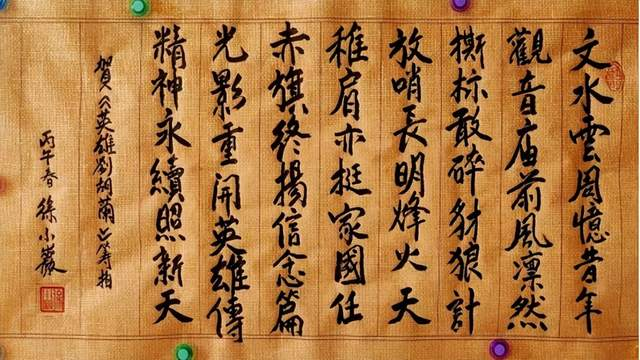 文水雲周憶昔年
觀音庙前風凛然
撕标敢碎豺狼計
放哨長明烽火天
稚肩亦挺家國任
赤旗終揚信念篇
光影重開英雄傳
精神永續照新天
賀《英雄劉胡蘭》筹拍
丙午春 徐小巖